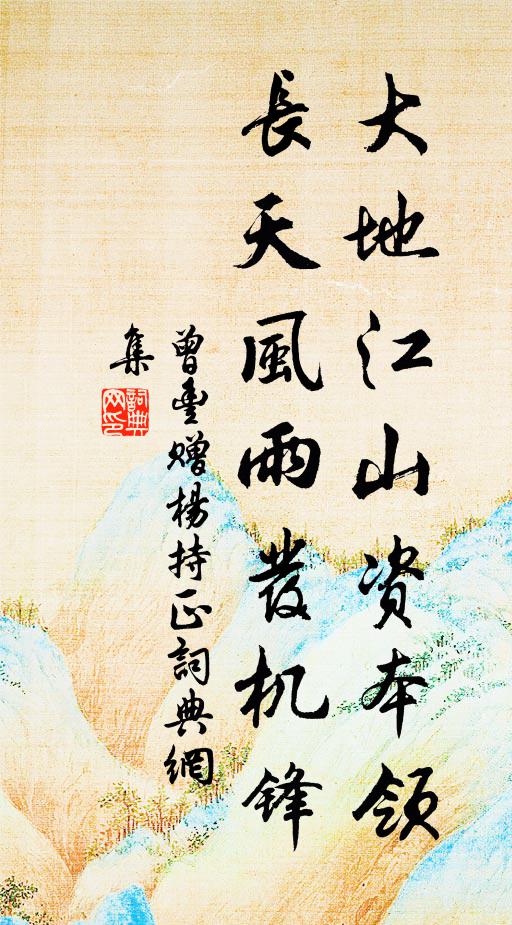 大地江山资本领
長天風雨發机锋
曾豊赠楊持正詞典網
集
詞典网印